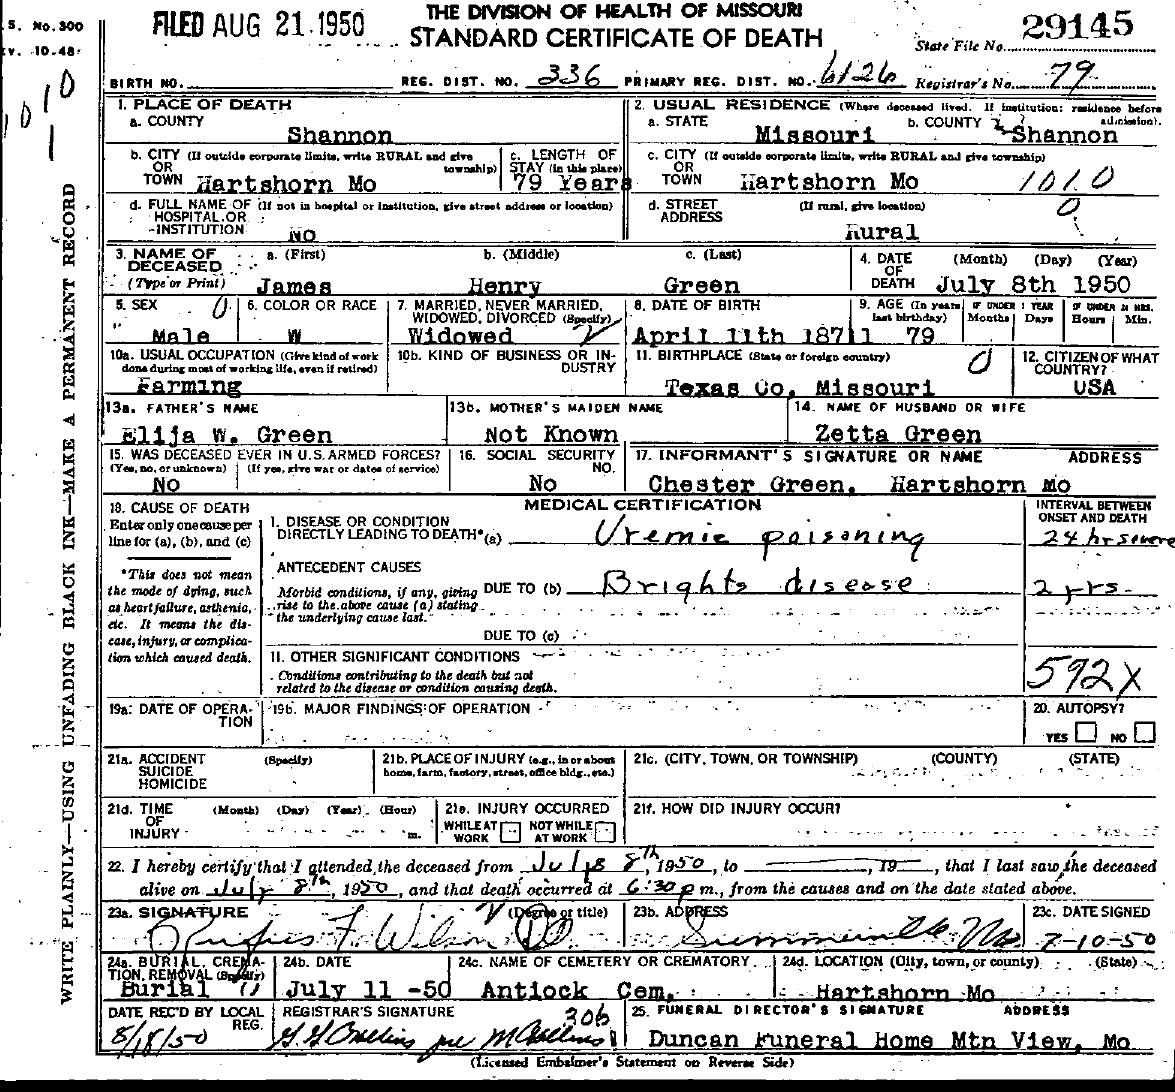 S. No. 300
v. 10-48
FILED AUG 21 1950
THE DIVISION OF HEALTH OF MISSOURI
STANDARD CERTIFICATE OF DEATH
State File No. 29145
BIRTH NO.
REG. DIST. NO. 336 PRIMARY REG. DIST. NO. 6126 Registrar's No. 79
WRITE PLAINLY—USING UNFADING BLACK INK—MAKE A PERMANENT RECORD
1. PLACE OF DEATH
a. COUNTY
Shannon
b. CITY (If outside corporate limits, write RURAL and give township)
OR
TOWN Hartshorn Mo
c. LENGTH OF STAY (in this place)
79 Years
d. FULL NAME OF (If not in hospital or institution, give street address or location)
HOSPITAL OR
INSTITUTION NO
2. USUAL RESIDENCE (Where deceased lived. If institution: residence before admission).
a. STATE Missouri
b. COUNTY Shannon
c. CITY (If outside corporate limits, write RURAL and give township)
OR
TOWN Hartshorn Mo 1010
d. STREET ADDRESS (If rural, give location) 0
Rural
3. NAME OF DECEASED (Type or Print)
a. (First) b. (Middle) c. (Last)
James Henry Green
4. DATE OF DEATH (Month) (Day) (Year)
July 8th 1950
5. SEX 0
Male
6. COLOR OR RACE
W
7. MARRIED, NEVER MARRIED, WIDOWED, DIVORCED (Specify)
Widowed
8. DATE OF BIRTH
April 11th 1871
9. AGE (In years last birthday) IF UNDER 1 YEAR Months Days IF UNDER 24 HRS. Hours Min.
79
10a. USUAL OCCUPATION (Give kind of work done during most of working life, even if retired)
Farming
10b. KIND OF BUSINESS OR INDUSTRY
11. BIRTHPLACE (State or foreign country) 0
Texas Co, Missouri
12. CITIZEN OF WHAT COUNTRY?
USA
13a. FATHER'S NAME
Elija W. Green
13b. MOTHER'S MAIDEN NAME
Not Known
14. NAME OF HUSBAND OR WIFE
Zetta Green
15. WAS DECEASED EVER IN U.S. ARMED FORCES?
(Yes, no, or unknown) (If yes, give war or dates of service)
No
16. SOCIAL SECURITY NO.
No
17. INFORMANT'S SIGNATURE OR NAME ADDRESS
Chester Green, Hartshorn Mo
18. CAUSE OF DEATH
Enter only one cause per line for (a), (b), and (c)
*This does not mean the mode of dying, such as heart failure, asthenia, etc. It means the disease, injury, or complication which caused death.
MEDICAL CERTIFICATION
INTERVAL BETWEEN ONSET AND DEATH
I. DISEASE OR CONDITION
DIRECTLY LEADING TO DEATH*(a) Uremic poisoning 24 hr severe
ANTECEDENT CAUSES
Morbid conditions, if any, giving rise to the above cause (a) stating the underlying cause last.
DUE TO (b) Brights disease 2 yrs.
DUE TO (c)
II. OTHER SIGNIFICANT CONDITIONS
Conditions contributing to the death but not related to the disease or condition causing death.
592X
19a. DATE OF OPERATION
19b. MAJOR FINDINGS OF OPERATION
20. AUTOPSY?
YES NO
21a. ACCIDENT SUICIDE HOMICIDE (Specify)
21b. PLACE OF INJURY (e.g., in or about home, farm, factory, street, office bldg., etc.)
21c. (CITY, TOWN, OR TOWNSHIP) (COUNTY) (STATE)
21d. TIME OF INJURY (Month) (Day) (Year) (Hour) m.
21e. INJURY OCCURRED
WHILE AT WORK NOT WHILE AT WORK
21f. HOW DID INJURY OCCUR?
22. I hereby certify that I attended the deceased from July 8th, 1950, to , 19 , that I last saw the deceased
alive on July 8th, 1950, and that death occurred at 6:30 p m., from the causes and on the date stated above.
23a. SIGNATURE (Degree or title)
Rufus F. Wilson DO
23b. ADDRESS
Summerville Mo
23c. DATE SIGNED
7-10-50
24a. BURIAL, CREMATION, REMOVAL (Specify)
Burial
24b. DATE
July 11 -50
24c. NAME OF CEMETERY OR CREMATORY
Antiock Cem,
24d. LOCATION (City, town, or county) (State)
Hartshorn Mo
DATE REC'D BY LOCAL REG.
8/18/50
REGISTRAR'S SIGNATURE
306
25. FUNERAL DIRECTOR'S SIGNATURE ADDRESS
Duncan Funeral Home Mtn View, Mo
(Licensed Embalmer's Statement on Reverse Side)